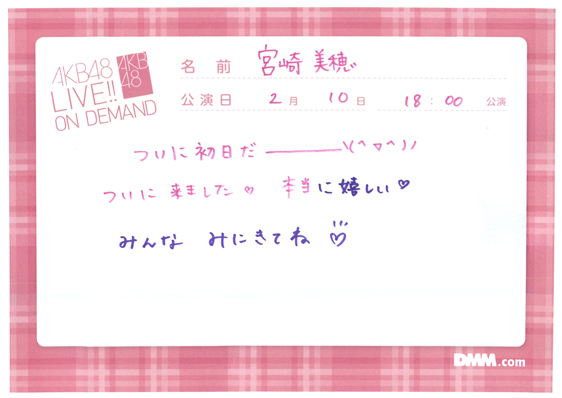 AKB48
LIVE!!
ON DEMAND
AKB
48
名前 宮崎 美穂
公演日 2月 10日 18:00 公演
ついに初日だ―――ヽ(^▽^)ノ
ついに 来ました♡ 本当に嬉しい♡
みんな みにきてね
DMM.com